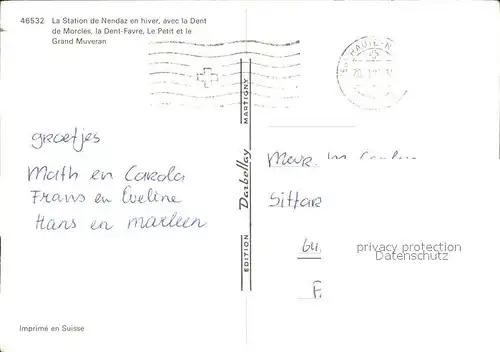 46532 La Station de Nendaz en hiver, avec la Dent
de Morcles, la Dent-Favre, Le Petit et le
Grand Muveran
groetjes
Math en Carola
Frans en Eveline
Hans en Marleen
EDITION Darbellay MARTIGNY
HAUTE-N
Mevr.
Sittar
privacy protection
Datenschutz
Imprimé en Suisse